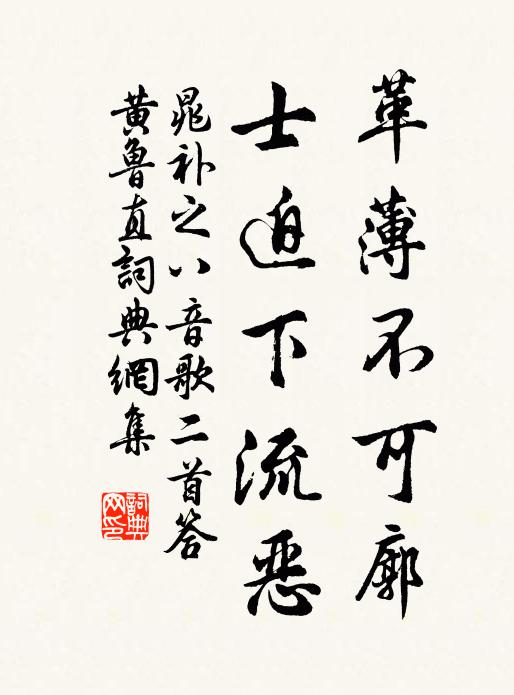 革薄不可廓
士迫下流惡
晁補之八音歌二首答
黃魯直詞典網集
詞典
网印